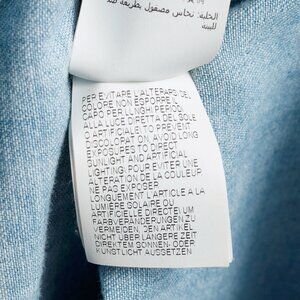 الحلية: نحاس مصقول بطريقة ضد
PER EVITARE L'ALTERAPS DEL
COLORE NON ESPORRE IL
CAPO PER LUNGHI PERIODI
ALLA LUCE DIRETTA DEL SOLE
O ARTIFICIALE/TO PREVENT
DISCOLORATION AVOID LONG
EXPOSURES TO DIRECT
SUNLIGHT AND ARTIFICIAL
LIGHTING/POUR EVITER UNE
ALTERATION DE LA COULEUR
NE PAS EXPOSER
LONGUEMENT L'ARTICLE A LA
LUMIERE SOLAIRE OU
ARTIFICIELLE DIRECTE/UM
FARBVERÄNDERUNGEN ZU
VERMEIDEN, DEN ARTIKEL
NICHT ÜBER LÄNGERE ZEIT
DIREKTEM SONNEN- ODER
KUNSTLICHT AUSSETZEN